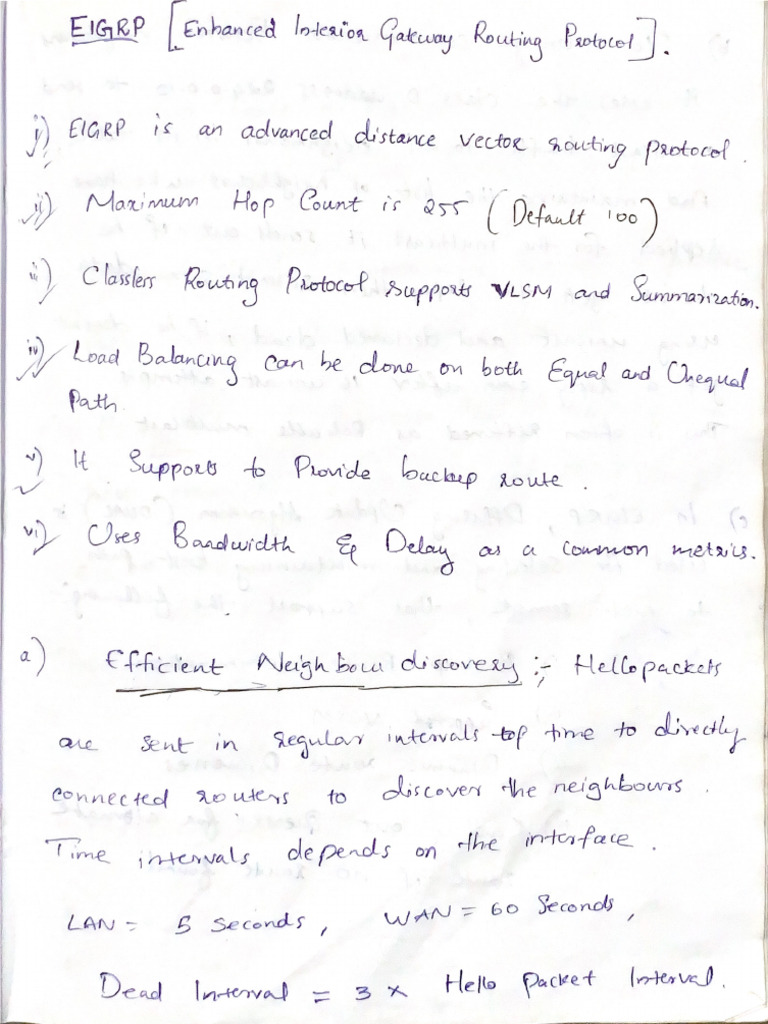 EIGRP [Enhanced Interior Gateway Routing Protocol].
i) EIGRP is an advanced distance vector routing protocol.
ii) Maximum Hop Count is 255 (Default 100)
iii) Classless Routing Protocol supports VLSM and Summarization.
iv) Load Balancing can be done on both Equal and Unequal
Path.
v) It Supports to Provide backup route.
vi) Uses Bandwidth & Delay as a common metrics.
a) Efficient Neighbour discovery :- Hello packets
are sent in regular intervals of time to directly
connected routers to discover the neighbours.
Time intervals depends on the interface.
LAN = 5 Seconds, WAN = 60 Seconds,
Dead Interval = 3 x Hello Packet Interval.